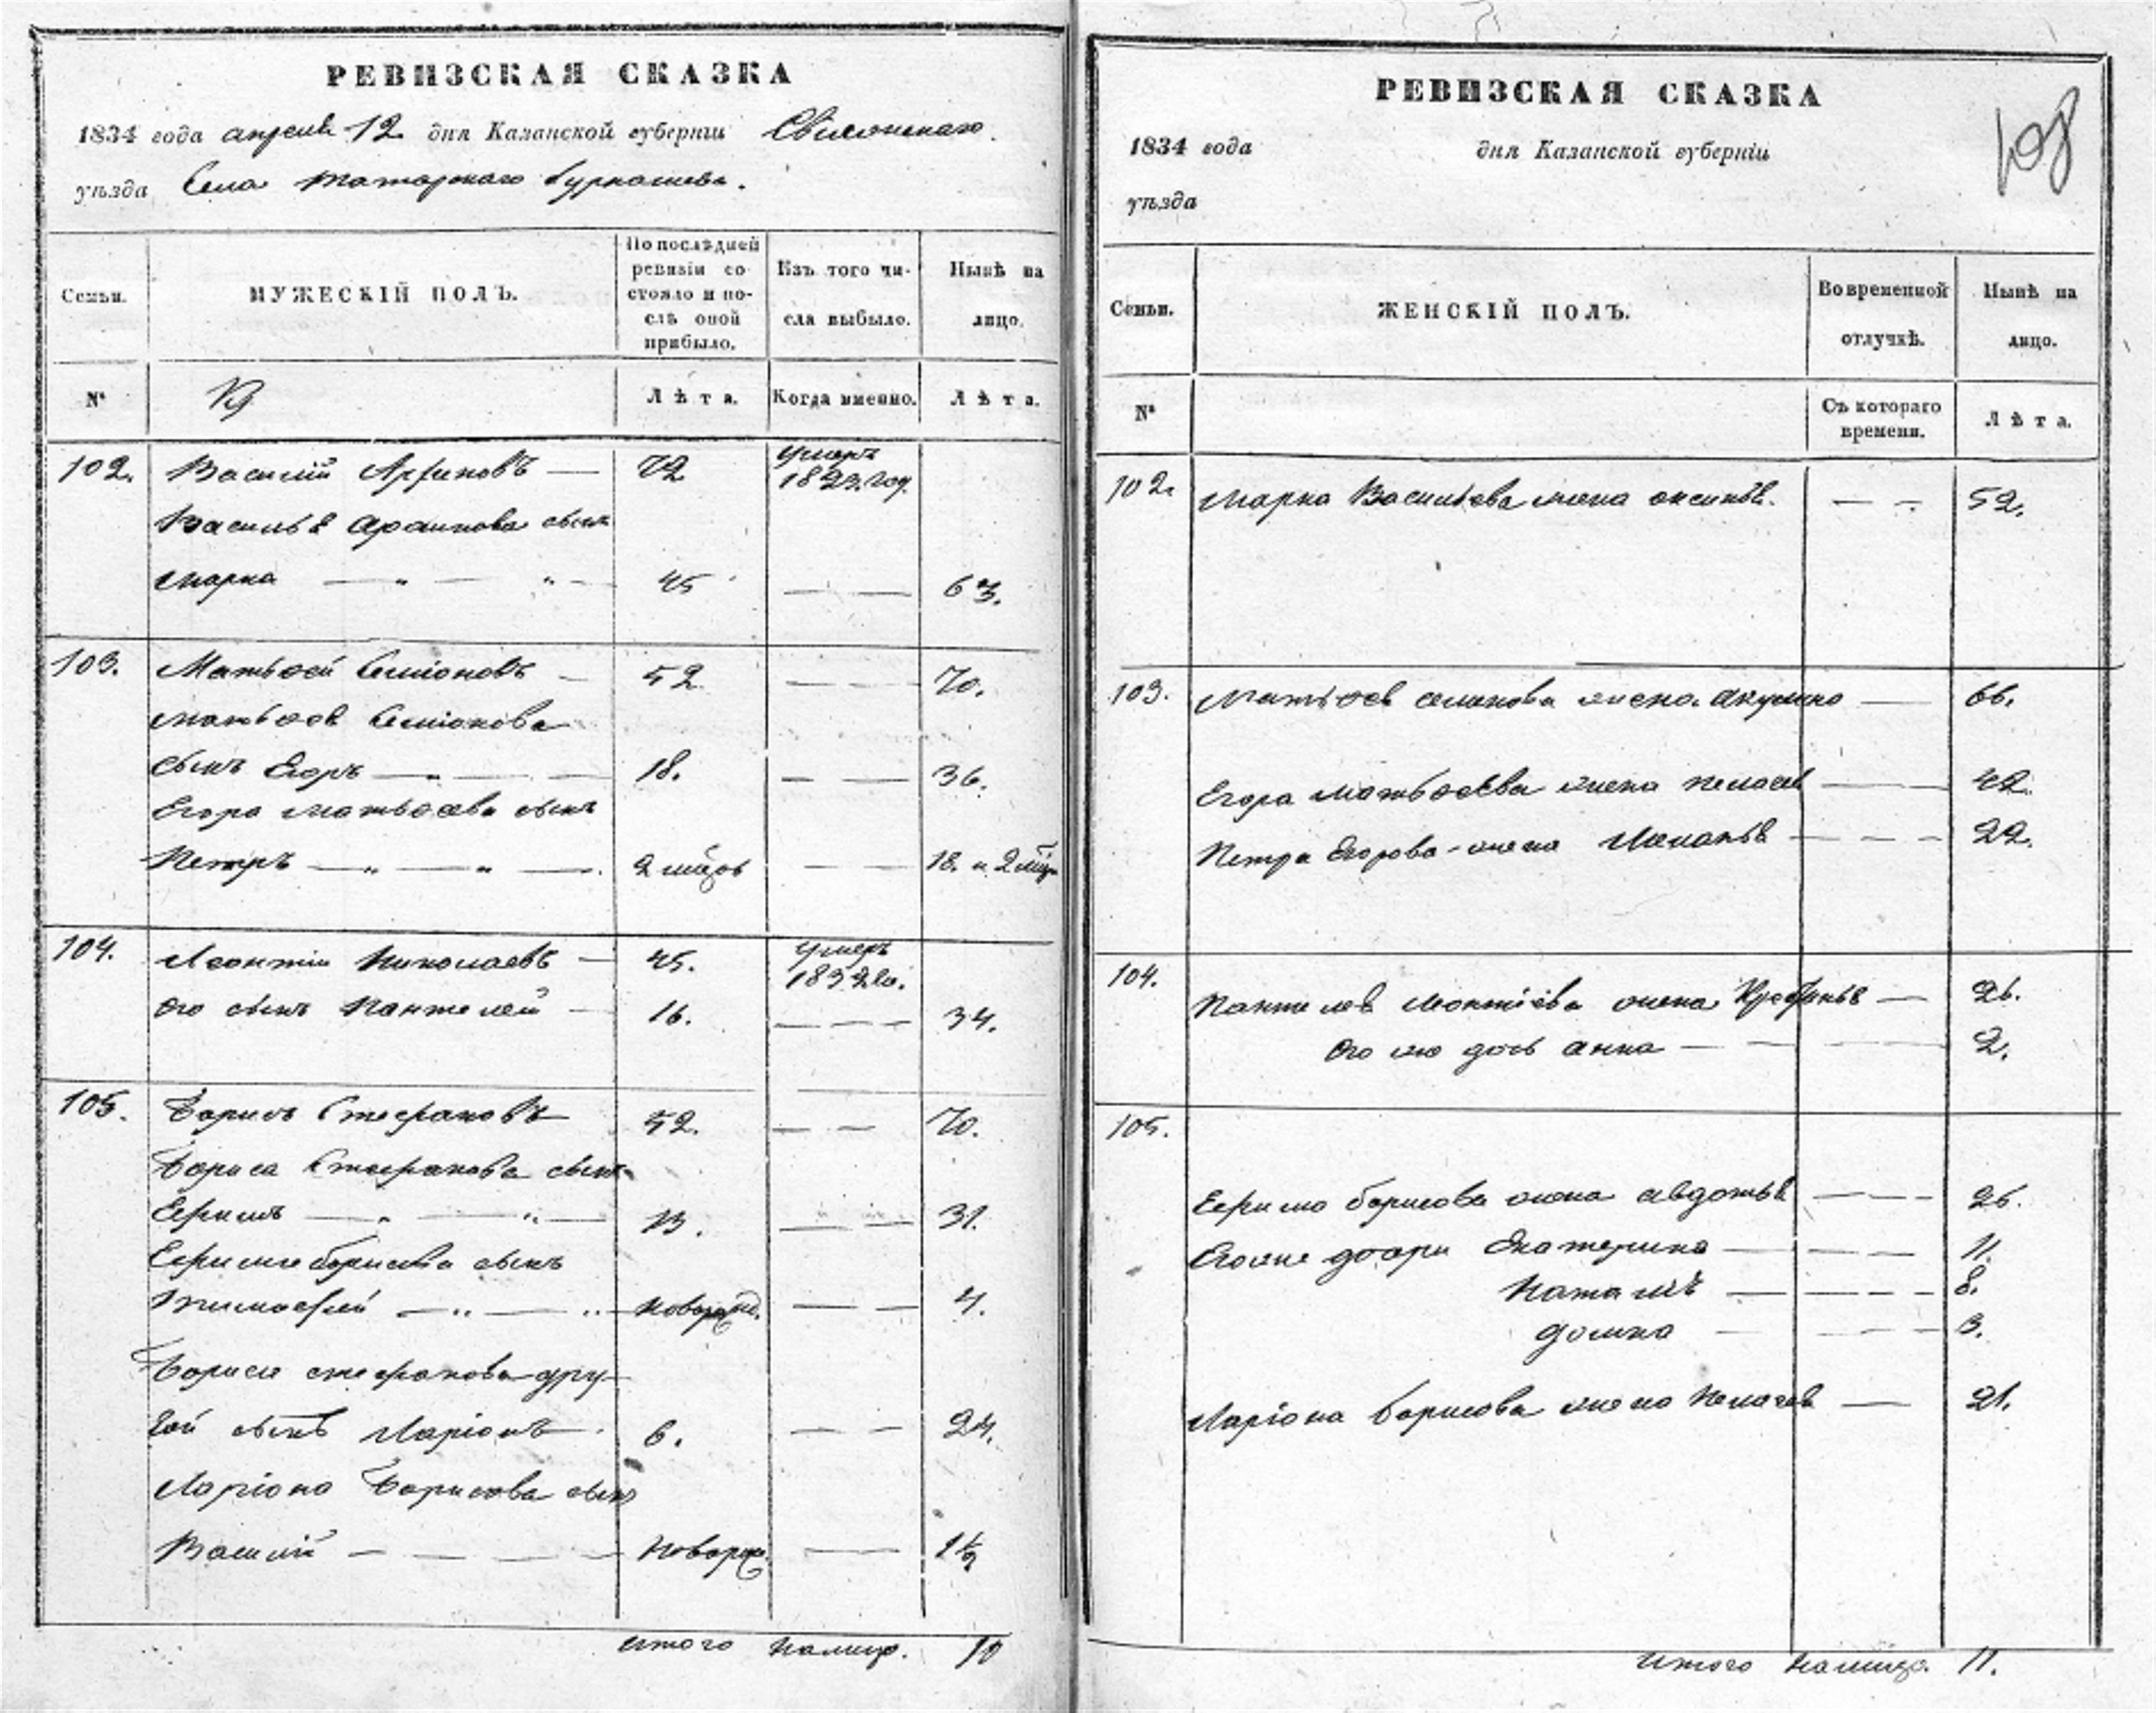 РЕВИЗСКАЯ СКАЗКА
1834 года апреля 12 дня Казанской губернiи
уѣзда Села Татарскаго Бурнашева.
Семьи.
МУЖЕСКIЙ ПОЛЪ.
По послѣдней ревизiи состояло и послѣ оной прибыло.
Изъ того числа выбыло.
Нынѣ на лицо.
№
Лѣта.
Когда именно.
Лѣта.
102. Василiй — 72 умеръ
Василья сынъ
Марка — „ — „ — 45 — — 63.
103. Матвѳей Семiоновъ — 52 — — 70.
Матвѳея Семiонова
сынъ Егоръ — „ — — 18. — — 36.
Егора Матвѳеева сынъ
Петръ — „ — „ — 2 мѣцов — — 18. и 2
104. Леонтiй Николаевъ — 45. умеръ
его сынъ Пантелей — 16. — — — 34.
105. Борисъ Стефановъ 52. — — 70.
Бориса Стефанова сынъ
Ефимъ — „ — „ — 13. — — 31.
сынъ
Тимоѳей — „ — „ — новорожд. — — 4.
Бориса Стефанова дру-
гой сынъ Ларiонъ 6. — — 24.
Ларiона Борисова сынъ
Василiй — — — — новорож. — 1½
итого налицо. 10
РЕВИЗСКАЯ СКАЗКА
1834 года дня Казанской губернiи
уѣзда
108
Семьи.
ЖЕНСКIЙ ПОЛЪ.
Во временной отлучкѣ.
Нынѣ на лицо.
№
Съ котораго времени.
Лѣта.
102. Марка Васильева жена — — 52.
103. Матвѳея Семенова жена Акулина — 66.
Егора Матвѳеева жена Пелагея — — 42.
Петра Егорова жена — — — 22.
104. Пантелея Леонтiева жена — 26.
его же дочь Анна — — — 2.
105.
Ефима Борисова жена Авдотья — — — 26.
Его же дочери Екатерина — — — 11.
Наталья — — — — 8.
Домна — — — 3.
Ларiона Борисова жена Пелагея — 21.
Итого налицо. 11.